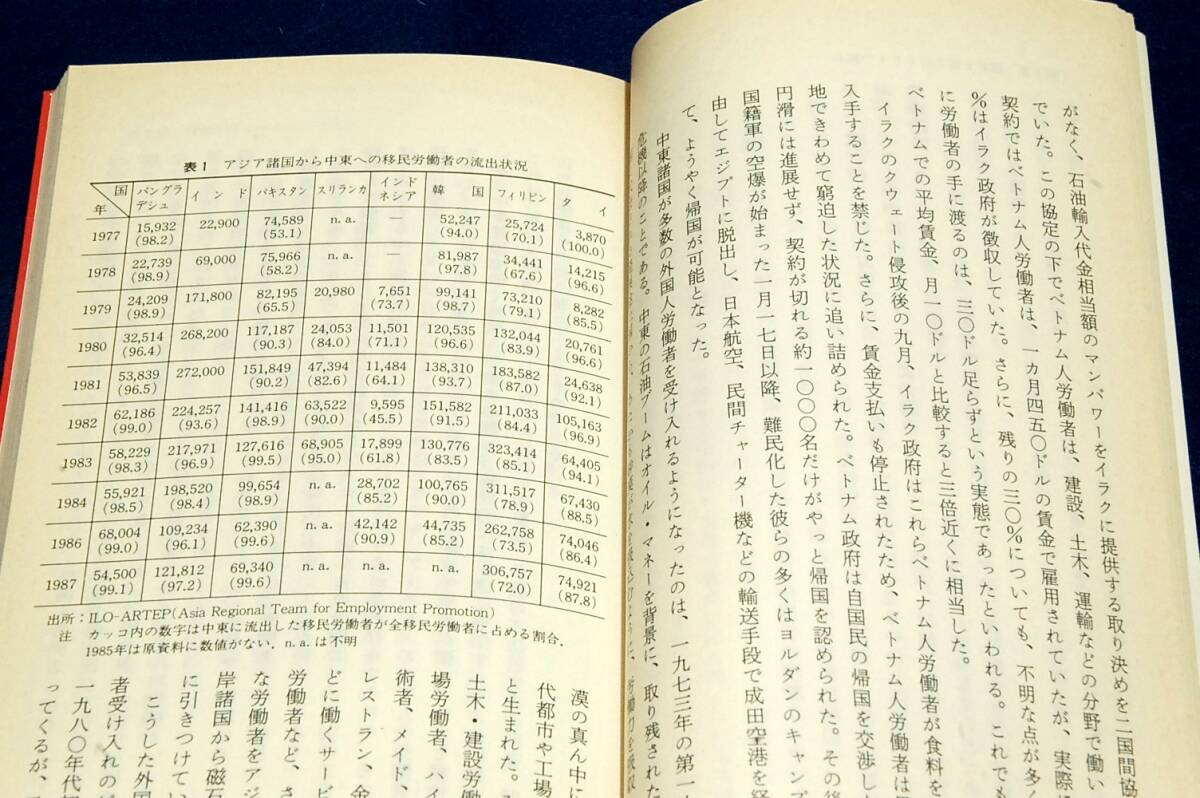 がなく、石油輸入代金相当額のマンパワーをイラクに提供する取り決めを二国間協
でいた。この協定の下でベトナム人労働者は、建設、土木、運輸などの分野で働い
契約ではベトナム人労働者は、一ヵ月四五〇ドルの賃金で雇用されていたが、実際に
%はイラク政府が徴収していた。さらに、残りの三〇%についても、不明な点が多く
に労働者の手に渡るのは、三〇ドル足らずという実態であったといわれる。これでも
ベトナムでの平均賃金、月一〇ドルと比較すると三倍近くに相当した。
イラクのクウェート侵攻後の九月、イラク政府はこれらベトナム人労働者が食料を
入手することを禁じた。さらに、賃金支払いも停止されたため、ベトナム人労働者は
地できわめて窮迫した状況に追い詰められた。ベトナム政府は自国民の帰国を交渉し
円滑には進展せず、契約が切れる約一〇〇〇名だけがやっと帰国を認められた。その後
国籍軍の空爆が始まった一月一七日以降、難民化した彼らの多くはヨルダンのキャンプ
由してエジプトに脱出し、日本航空、民間チャーター機などの輸送手段で成田空港を経
て、ようやく帰国が可能となった。
中東諸国が多数の外国人労働者を受け入れるようになったのは、一九七三年の第一
危機以降のことである。中東の石油ブームはオイル・マネーを背景に、取り残された
表1 アジア諸国から中東への移民労働者の流出状況
国 年 バングラデシュ インド パキスタン スリランカ インドネシア 韓国 フィリピン タイ
1977 15,932 (98.2) 22,900 74,589 (53.1) n.a. — 52,247 (94.0) 25,724 (70.1) 3,870 (100.0)
1978 22,739 (98.9) 69,000 75,966 (58.2) n.a. — 81,987 (97.8) 34,441 (67.6) 14,215 (96.6)
1979 24,209 (98.9) 171,800 82,195 (65.5) 20,980 7,651 (73.7) 99,141 (98.7) 73,210 (79.1) 8,282 (85.5)
1980 32,514 (96.4) 268,200 117,187 (90.3) 24,053 (84.0) 11,501 (71.1) 120,535 (96.6) 132,044 (83.9) 20,761 (96.6)
1981 53,839 (96.5) 272,000 151,849 (90.2) 47,394 (82.6) 11,484 (64.1) 138,310 (93.7) 183,582 (87.0) 24,638 (92.1)
1982 62,186 (99.0) 224,257 (93.6) 141,416 (98.9) 63,522 (90.0) 9,595 (45.5) 151,582 (91.5) 211,033 (84.4) 105,163 (96.9)
1983 58,229 (98.3) 217,971 (96.9) 127,616 (99.5) 68,905 (95.0) 17,899 (61.8) 130,776 (83.5) 323,414 (85.1) 64,405 (94.1)
1984 55,921 (98.5) 198,520 (98.4) 99,654 (98.9) n.a. 28,702 (85.2) 100,765 (90.0) 311,517 (78.9) 67,430 (88.5)
1986 68,004 (99.0) 109,234 (96.1) 62,390 (99.6) n.a. 42,142 (90.9) 44,735 (85.2) 262,758 (73.5) 74,046 (86.4)
1987 54,500 (99.1) 121,812 (97.2) 69,340 (99.6) n.a. n.a. n.a. 306,757 (72.0) 74,921 (87.8)
出所：ILO-ARTEP(Asia Regional Team for Employment Promotion)
注 カッコ内の数字は中東に流出した移民労働者が全移民労働者に占める割合．
1985年は原資料に数値がない．n.a.は不明
漠の真ん中に
代都市や工場
と生まれた。
土木・建設労
場労働者、ハイ
術者、メイド、
レストラン、金
どに働くサービ
労働者など、さ
な労働者をアジ
岸諸国から磁石
に引きつけてい
こうした外国
者受け入れの
一九八〇年代
ってくるが、